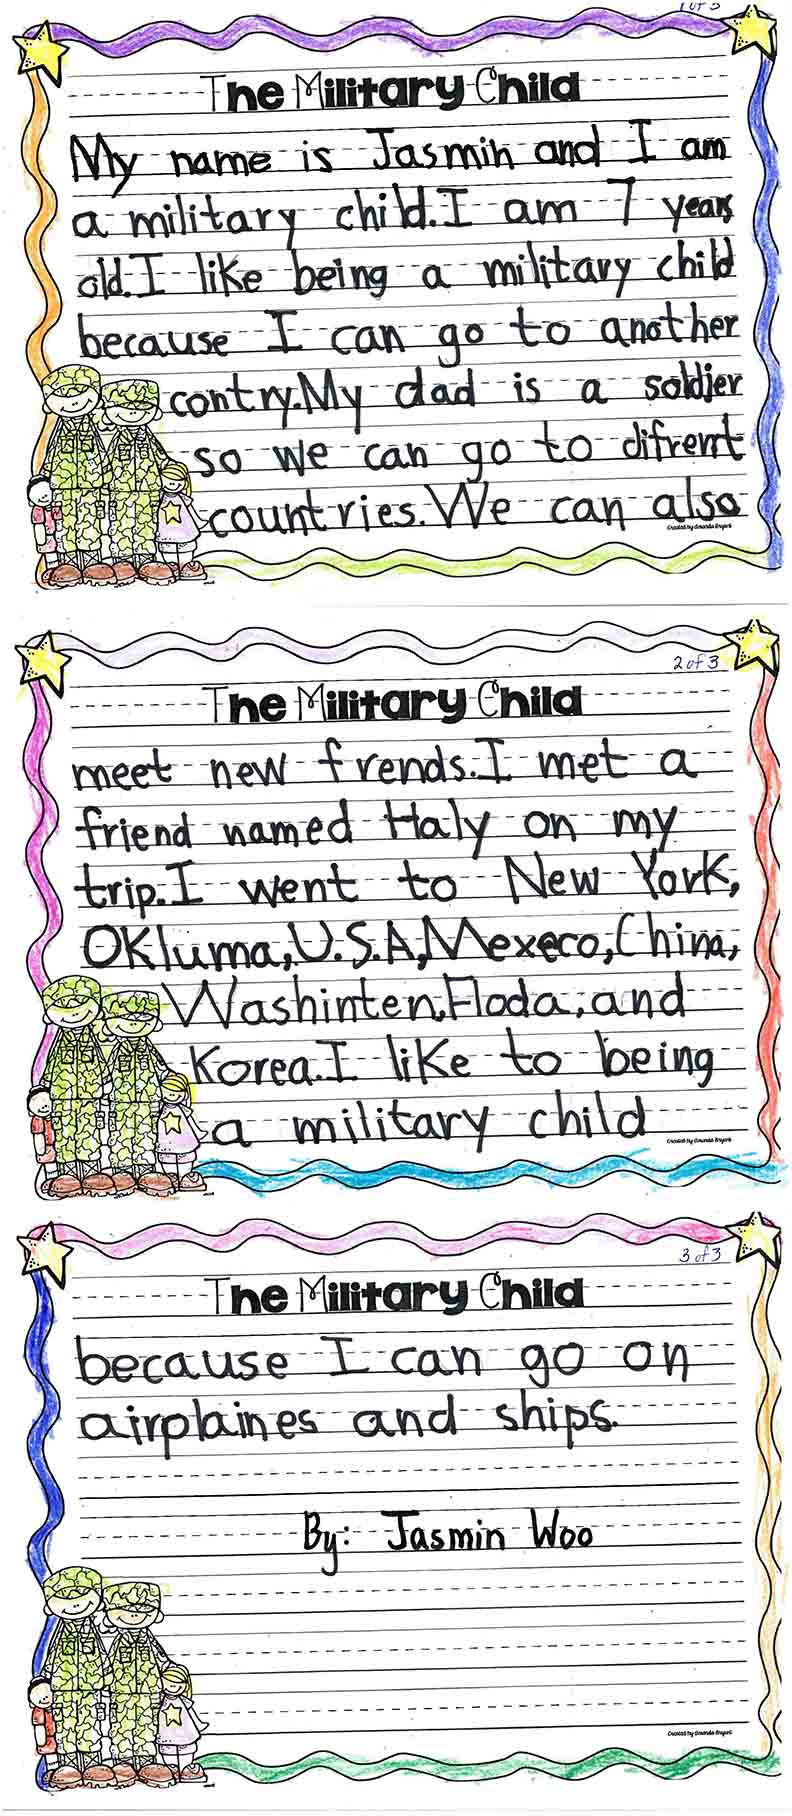 1 of 3
The Military Child
My name is Jasmin and I am
a military child.I am 7 years
old.I like being a military child
because I can go to another
contry.My dad is a soldier
so we can go to difrent
countries.We can also
Created by Amanda Bryant
2 of 3
The Military Child
meet new frends.I met a
friend named Haly on my
trip.I went to New York,
OKluma,U.S.A,Mexeco,China,
Washinten,Floda,and
Korea.I like to being
a military child
Created by Amanda Bryant
3 of 3
The Military Child
because I can go on
airplaines and ships.
By: Jasmin Woo
Created by Amanda Bryant